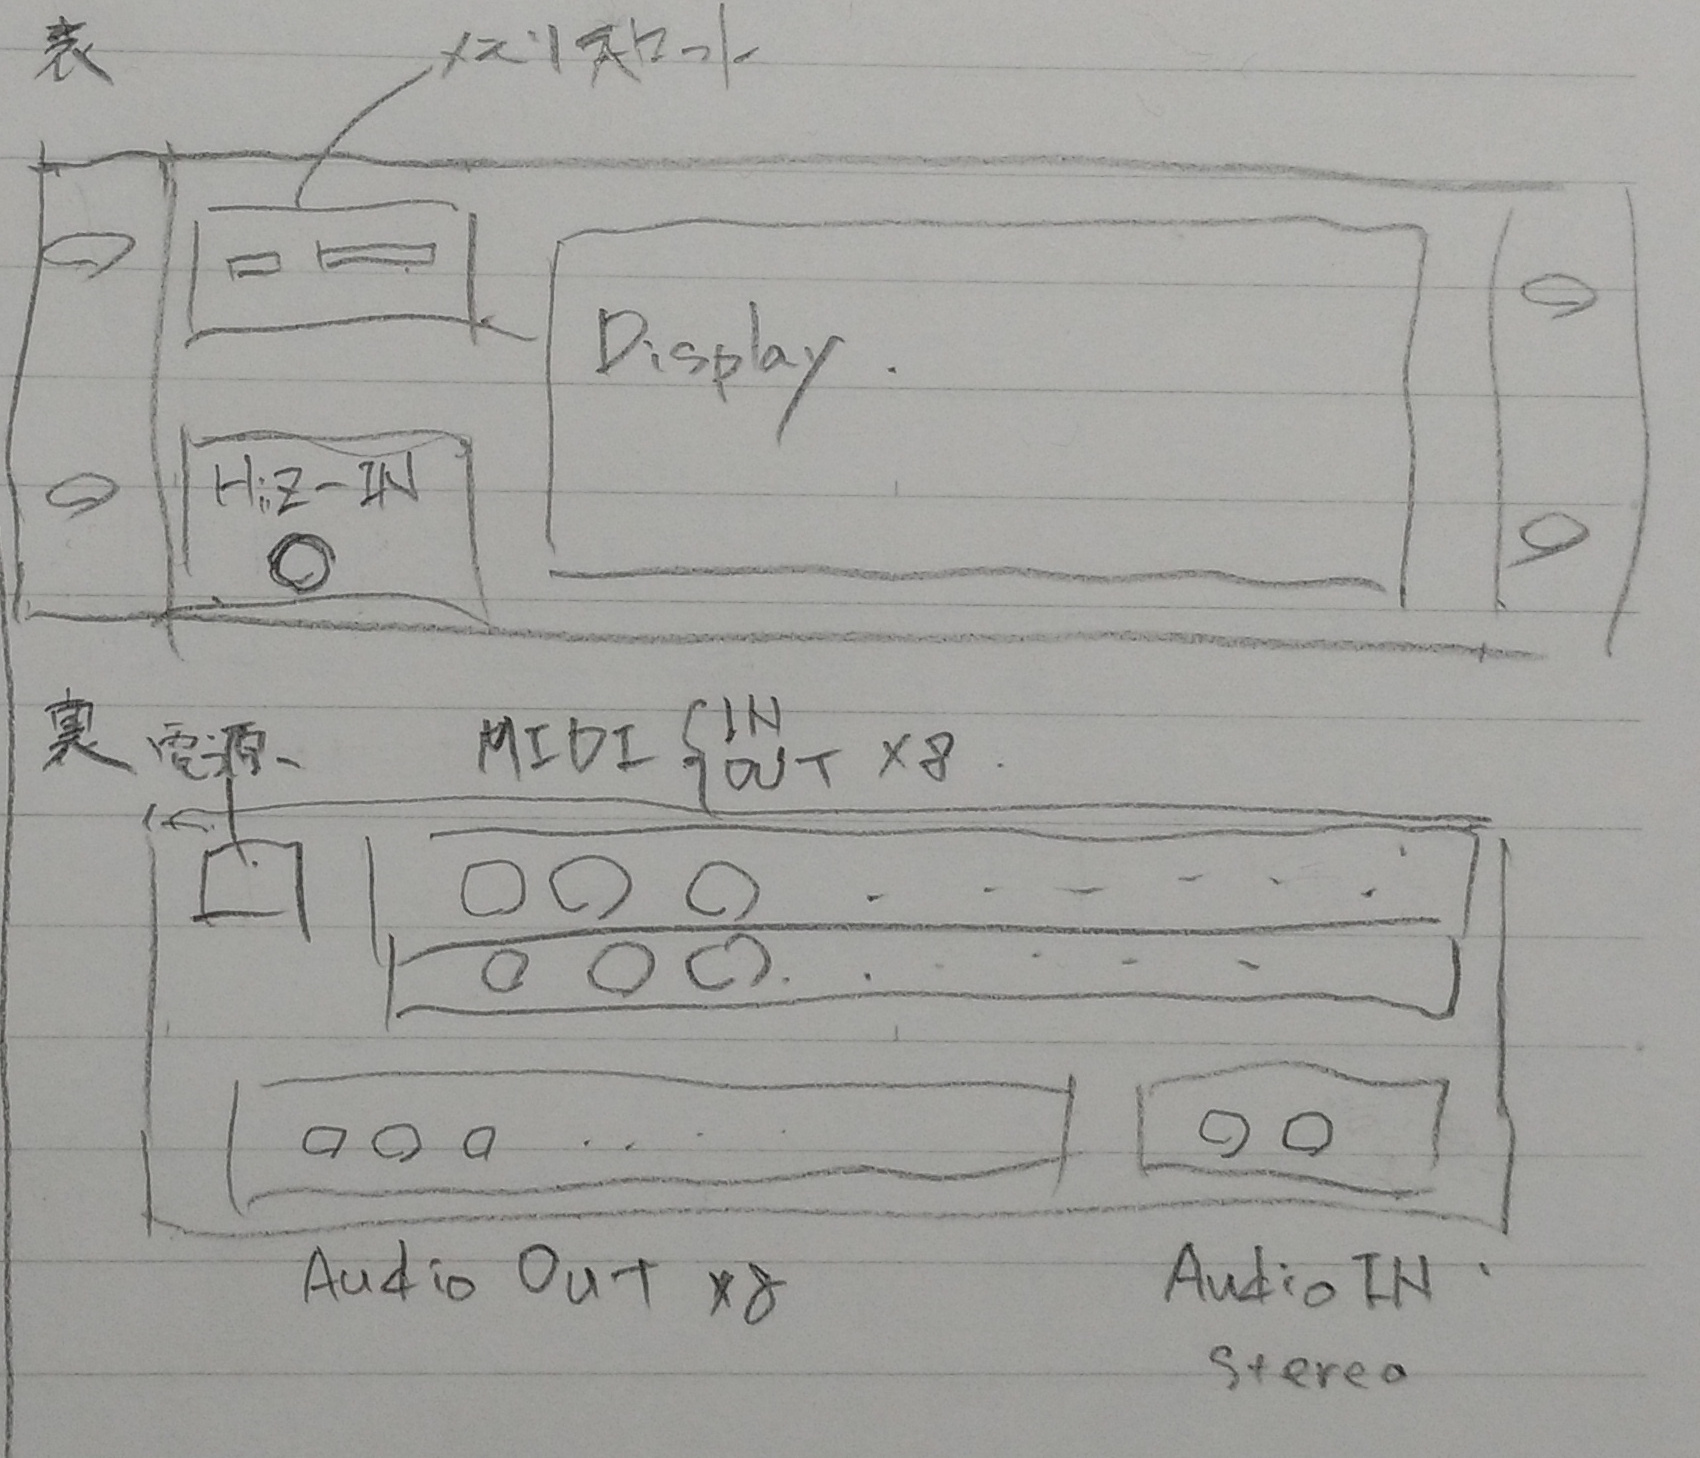 表
メモリスロット
Display.
HiZ-IN
裏 電源
MIDI { IN OUT ×8.
Audio OUT ×8
Audio IN
Stereo